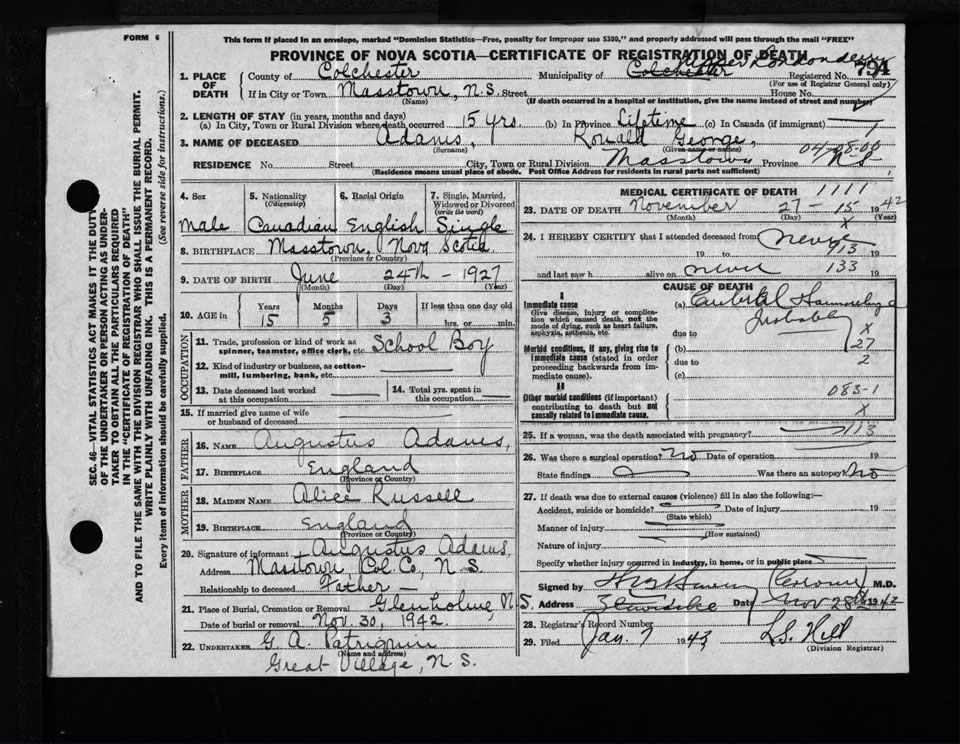 FORM 6
This form if placed in an envelope, marked "Dominion Statistics—Free, penalty for improper use $300," and properly addressed will pass through the mail "FREE"
PROVINCE OF NOVA SCOTIA—CERTIFICATE OF REGISTRATION OF DEATH
1. PLACE OF DEATH
County of Colchester Municipality of Colchester Registered No. 794
(For use of Registrar General only)
If in City or Town Masstown, N.S. Street House No.
(Name) (If death occurred in a hospital or institution, give the name instead of street and number)
2. LENGTH OF STAY (in years, months and days)
(a) In City, Town or Rural Division where death occurred 15 yrs. (b) In Province Lifetime (c) In Canada (if immigrant)
3. NAME OF DECEASED Adams, Ronald George,
(Surname) (Given name or names)
04-08-00
RESIDENCE No. Street City, Town or Rural Division Masstown Province N S
(Residence means usual place of abode. Post Office Address for residents in rural parts not sufficient)
4. Sex Male
5. Nationality (Citizenship) Canadian
6. Racial Origin English
7. Single, Married, Widowed or Divorced (write the word) Single
8. BIRTHPLACE Masstown, Nova Scotia
(Province or Country)
9. DATE OF BIRTH June 24th - 1927
(Month) (Day) (Year)
10. AGE in Years Months Days If less than one day old
15 5 3 hrs. or min.
OCCUPATION
11. Trade, profession or kind of work as spinner, teamster, office clerk, etc. School Boy
12. Kind of industry or business, as cotton-mill, lumbering, bank, etc.
13. Date deceased last worked at this occupation
14. Total yrs. spent in this occupation
15. If married give name of wife or husband of deceased
FATHER
16. NAME Augustus Adams,
17. BIRTHPLACE England
(Province or Country)
MOTHER
18. MAIDEN NAME Alice Russell
19. BIRTHPLACE England
(Province or Country)
20. Signature of informant Augustus Adams,
Address Masstown, Col. Co., N. S.
Relationship to deceased Father
21. Place of Burial, Cremation or Removal Glenholme, N.S.
Date of burial or removal Nov. 30, 1942.
22. UNDERTAKER G. A.
(Name and address)
Great Village, N. S.
MEDICAL CERTIFICATE OF DEATH 1111
23. DATE OF DEATH November 27 - 15 1942
(Month) (Day) (Year)
24. I HEREBY CERTIFY that I attended deceased from never X
19 to 113 19
and last saw h alive on never 133 19
CAUSE OF DEATH
I
Immediate cause (a) Cerebral Hemorrhage
Give disease, injury or complication which caused death, not the mode of dying, such as heart failure, asphyxia, asthenia, etc.
Probably
due to X
Morbid conditions, if any, giving rise to immediate cause (stated in order proceeding backwards from immediate cause).
(b) 27
due to 2
(c)
II
Other morbid conditions (if important) contributing to death but not causally related to immediate cause.
083-1
X
25. If a woman, was the death associated with pregnancy? 113
26. Was there a surgical operation? No Date of operation 19
State findings Was there an autopsy? No
27. If death was due to external causes (violence) fill in also the following:—
Accident, suicide or homicide? Date of injury 19
(State which)
Manner of injury
(How sustained)
Nature of injury
Specify whether injury occurred in industry, in home, or in public place
Signed by (Coroner) M.D.
Address Date Nov 28th 1942
28. Registrar's Record Number
29. Filed Jan. 7 1943 L.S. Hill
(Division Registrar)
SEC. 46—VITAL STATISTICS ACT MAKES IT THE DUTY
OF THE UNDERTAKER OR PERSON ACTING AS UNDER-
TAKER TO OBTAIN ALL THE PARTICULARS REQUIRED
IN THE "CERTIFICATE OF REGISTRATION OF DEATH"
AND TO FILE THE SAME WITH THE DIVISION REGISTRAR WHO SHALL ISSUE THE BURIAL PERMIT.
WRITE PLAINLY WITH UNFADING INK. THIS IS A PERMANENT RECORD.
Every item of information should be carefully supplied. (See reverse side for instructions.)